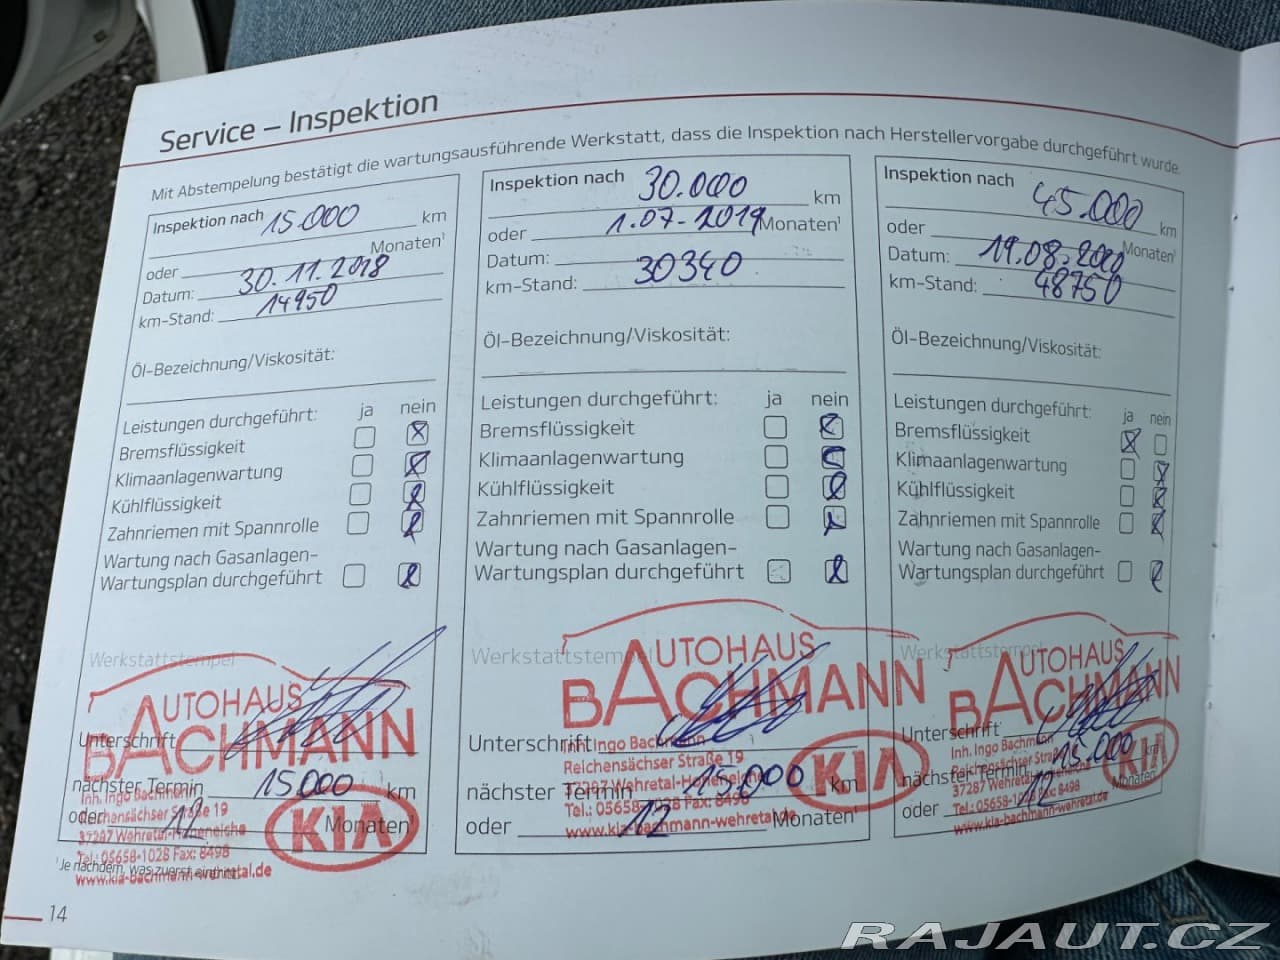 Service – Inspektion
Mit Abstempelung bestätigt die wartungsausführende Werkstatt, dass die Inspektion nach Herstellervorgabe durchgeführt wurde.
Inspektion nach 15.000 km
oder Monaten¹
Datum: 30.11.2018
km-Stand: 14950
Öl-Bezeichnung/Viskosität:
Leistungen durchgeführt: ja nein
Bremsflüssigkeit
Klimaanlagenwartung
Kühlflüssigkeit
Zahnriemen mit Spannrolle
Wartung nach Gasanlagen-
Wartungsplan durchgeführt
Werkstattstempel
AUTOHAUS
BACHMANN
Unterschrift
nächster Termin 15.000 km
Inh. Ingo Bachmann
oder 12 Monaten¹
Reichensächser Straße 19
37287 Wehretal-Hoheneiche
Tel.: 05658-1028 Fax: 8498
www.kia-bachmann-wehretal.de
KIA
¹Je nachdem, was zuerst eintritt
14
Inspektion nach 30.000 km
oder 1.07-2019 Monaten¹
Datum: 30340
km-Stand:
Öl-Bezeichnung/Viskosität:
Leistungen durchgeführt: ja nein
Bremsflüssigkeit
Klimaanlagenwartung
Kühlflüssigkeit
Zahnriemen mit Spannrolle
Wartung nach Gasanlagen-
Wartungsplan durchgeführt
Werkstattstempel
AUTOHAUS
BACHMANN
Unterschrift
Inh. Ingo Bachmann
Reichensächser Straße 19
nächster Termin 15.000 km
37287 Wehretal-Hoheneiche
Tel.: 05658-1028 Fax: 8498
oder 12 Monaten¹
www.kia-bachmann-wehretal.de
KIA
Inspektion nach 45.000 km
oder Monaten¹
Datum: 19.08.2020
km-Stand: 48750
Öl-Bezeichnung/Viskosität:
Leistungen durchgeführt: ja nein
Bremsflüssigkeit
Klimaanlagenwartung
Kühlflüssigkeit
Zahnriemen mit Spannrolle
Wartung nach Gasanlagen-
Wartungsplan durchgeführt
Werkstattstempel
AUTOHAUS
BACHMANN
Unterschrift
Inh. Ingo Bachmann
Reichensächser Straße 19
nächster Termin 15.000 km
37287 Wehretal-Hoheneiche
Tel.: 05658-1028 Fax: 8498
oder 12 Monaten¹
www.kia-bachmann-wehretal.de
KIA
RAJAUT.CZ